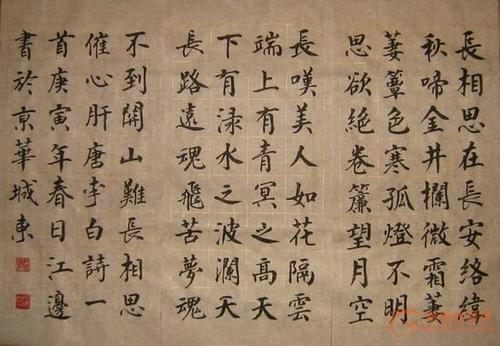 長相思在長安絡緯
秋啼金井欄微霜萋
萋簟色寒孤燈不明
思欲絕卷簾望月空
長嘆美人如花隔雲
端上有青冥之高天
下有渌水之波瀾天
長路遠魂飛苦夢魂
不到關山難長相思
催心肝唐李白詩一
首庚寅年春日江邊
書於京華城東